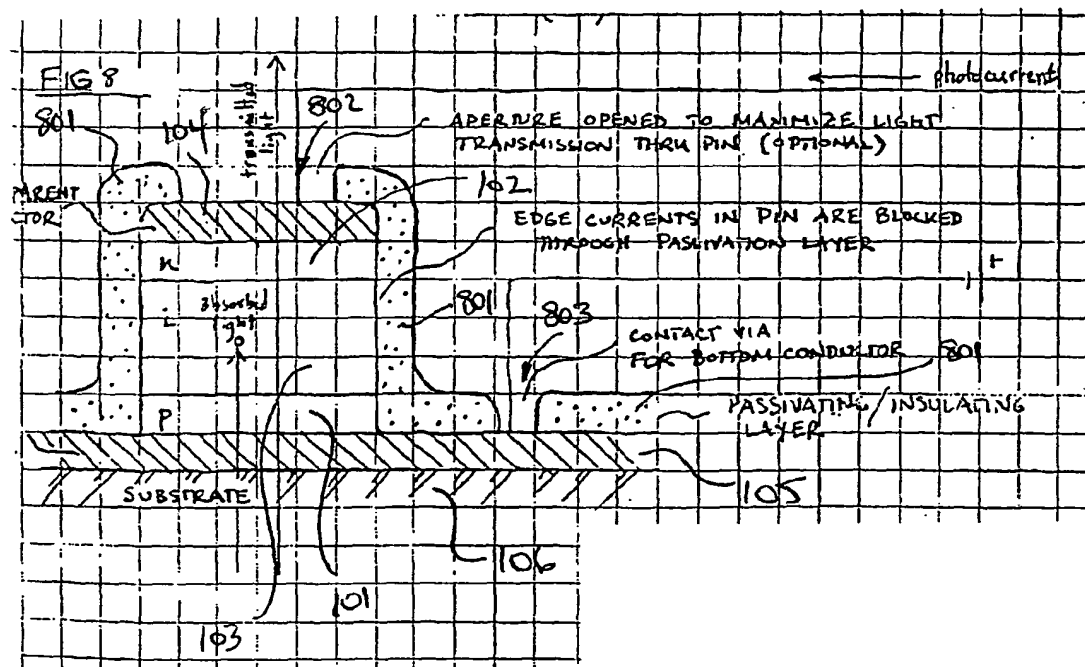 FIG 8
801
104
transmitted
light
802
photocurrent
APERTURE OPENED TO MAXIMIZE LIGHT
TRANSMISSION THRU PIN (OPTIONAL)
102
PARENT
CTOR
EDGE CURRENTS IN PIN ARE BLOCKED
THROUGH PASSIVATION LAYER
n
+
i
absorbed
light
801
803
CONTACT VIA
FOR BOTTOM CONDUCTOR
801
P
PASSIVATING/INSULATING
LAYER
SUBSTRATE
105
106
101
103